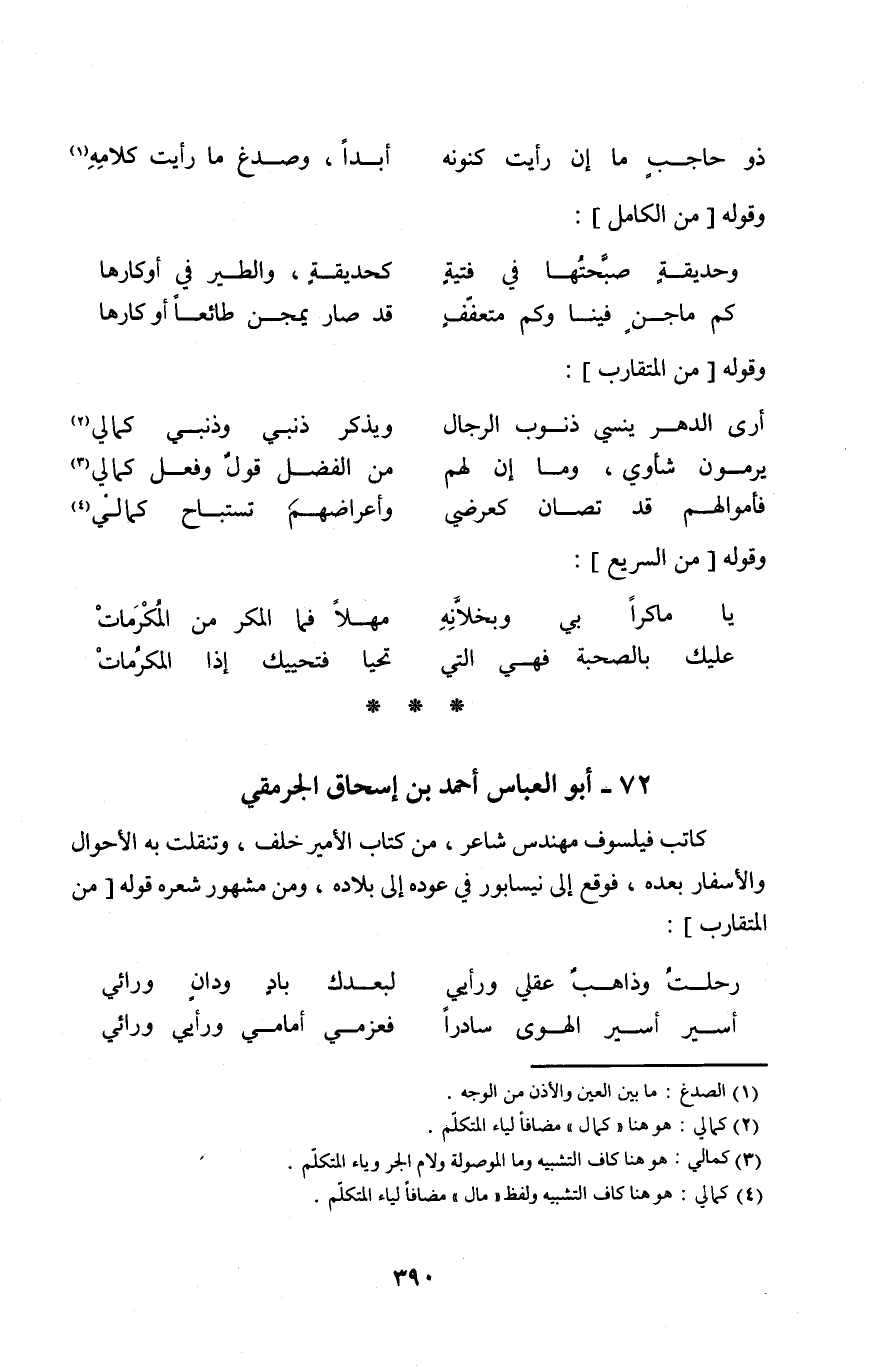 ذو حاجــبٍ ما إن رأيت كنونه أبــداً ، وصــدغ ما رأيت كلامِهِ(١)
وقوله [ من الكامل ] :
وحديقــةٍ صبَّحتُهــا في فتيةٍ كحديقــةٍ ، والطــير في أوكارها
كم ماجــنٍ فينــا وكم متعفّفٍ قد صار يمجــن طائعــاً أو كارها
وقوله [ من المتقارب ] :
أرى الدهــر ينسي ذنــوب الرجال ويذكر ذنبــي وذنبــي كمالي(٢)
يرمــون شأوي ، ومــا إن لهم من الفضــل قولٌ وفعــل كمالي(٣)
فأموالهــم قد تصــان كعرضي وأعراضهــمَ تستبــاح كمالــيْ(٤)
وقوله [ من السريع ] :
يا ماكراً بي وبخلاَّنِهِ مهــلاً فما المكر من المُكْرَماتْ
عليك بالصحبة فهــي التي تحيا فتحييك إذا المكرُماتْ
* * *
٧٢ - أبو العباس أحمد بن إسحاق الجرمقي
كاتب فيلسوف مهندس شاعر ، من كتاب الأمير خلف ، وتنقلت به الأحوال
والأسفار بعده ، فوقع إلى نيسابور في عوده إلى بلاده ، ومن مشهور شعره قوله [ من
المتقارب ] :
رحلــتُ وذاهــبٌ عقلي ورأيي لبعــدك بادٍ ودانٍ ورائي
أســير أسير الهــوى سادراً فعزمــي أمامــي ورأيي ورائي
(١) الصدغ : ما بين العين والأذن من الوجه .
(٢) كمالي : هو هنا « كمال » مضافاً لياء المتكلّم .
(٣) كمالي : هو هنا كاف التشبيه وما الموصولة ولام الجر وياء المتكلّم .
(٤) كمالي : هو هنا كاف التشبيه ولفظ « مال » مضافاً لياء المتكلّم .
٣٩٠